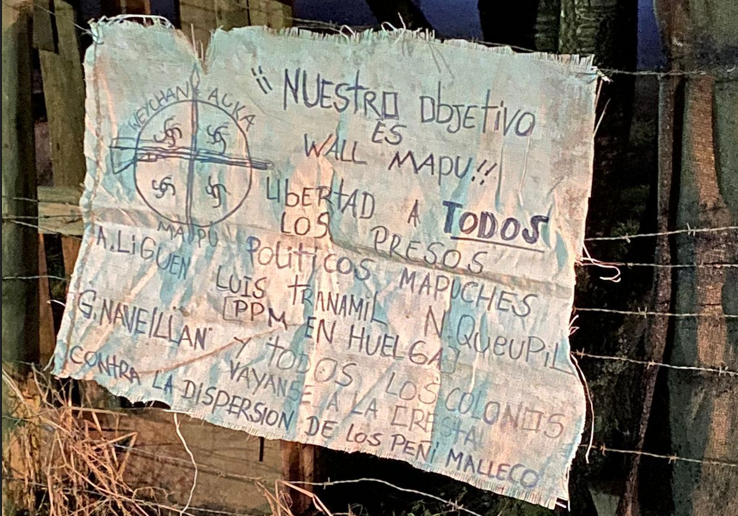 ¡¡ NUESTRO ObjETivo
ES
WALL MAPU!!
WEYCHAN AUKA
MAPU
LIBERTAD A TODOS
LOS PRESOS
POLÍTICOS MAPUCHES
A.LiGUEN
LUIS TRANAMIL N.QUEUPIL
[PPM EN HUELGA]
G.NAVEILLAN
Y TODOS LOS COLONOS
VAYANSE A LA CRESTA
CONTRA LA DISPERSION DE LOS PEÑI MALLECO